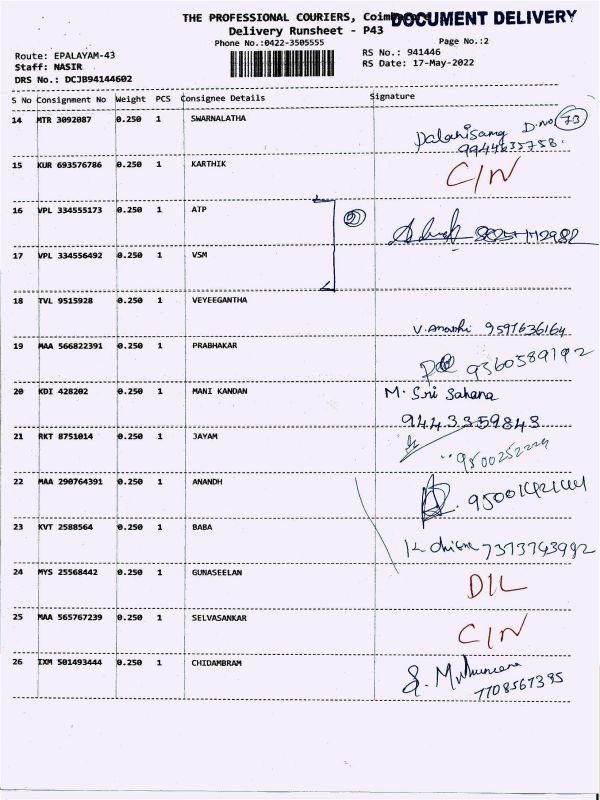 THE PROFESSIONAL COURIERS, Coimbatore
DOCUMENT DELIVERY
Delivery Runsheet - P43
Phone No.:0422-3505555
Page No.:2
Route: EPALAYAM-43
RS No.: 941446
Staff: NASIR
RS Date: 17-May-2022
DRS No.: DCJB94144602
S No Consignment No Weight PCS Consignee Details Signature
14 MTR 3092087 0.250 1 SWARNALATHA
Palanisamy D.no 73
15 KUR 693576786 0.250 1 KARTHIK
C/N
16 VPL 334555173 0.250 1 ATP
2
17 VPL 334556492 0.250 1 VSM
18 TVL 9515928 0.250 1 VEYEEGANTHA
9597636164
19 MAA 566822391 0.250 1 PRABHAKAR
9360589192
20 KDI 428202 0.250 1 MANI KANDAN
M. Sri Sahana
9443359843
21 RKT 8751014 0.250 1 JAYAM
22 MAA 290764391 0.250 1 ANANDH
23 KVT 2588564 0.250 1 BABA
7373743992
24 MYS 25568442 0.250 1 GUNASEELAN
D/L
25 MAA 565767239 0.250 1 SELVASANKAR
C/N
26 IXM 501493444 0.250 1 CHIDAMBRAM
7708567395